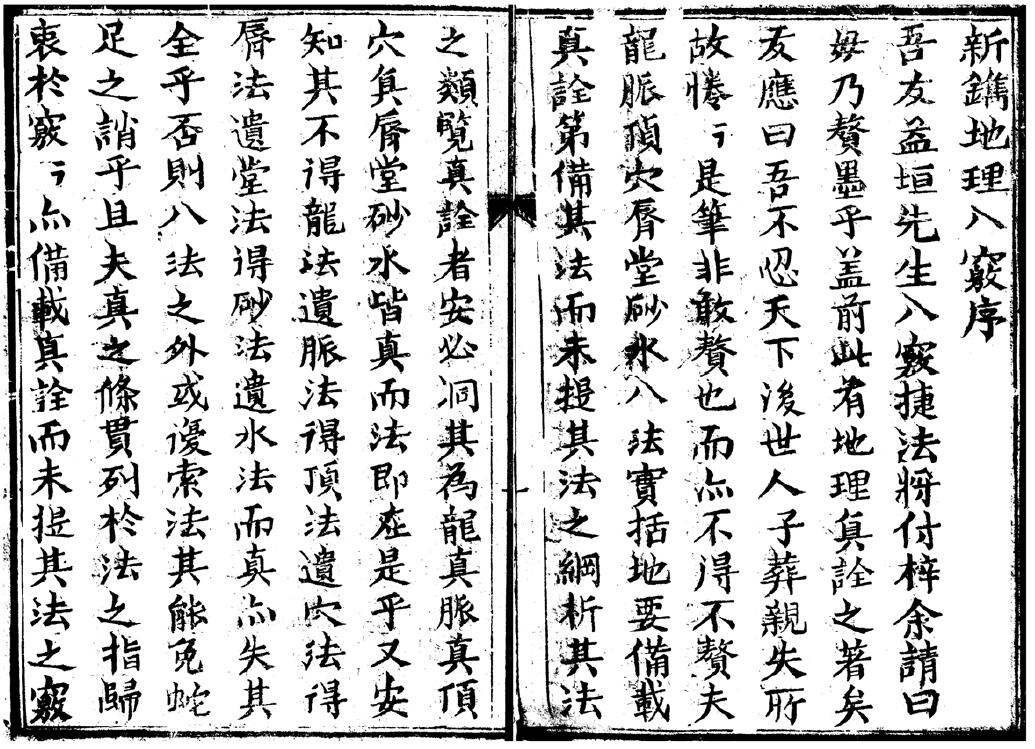 新鐫地理八竅序
吾友益垣先生八竅捷法將付梓余請曰
毋乃贅墨乎盖前此有地理真詮之著矣
友應曰吾不忍天下後世人子葬親失所
故惓々是筆非敢贅也而亦不得不贅夫
龍脈頂穴脣堂砂水八法實括地要備載
真詮第備其法而未提其法之綱析其法
之類覽真詮者安必洞其為龍真脈真頂
穴真脣堂砂水皆真而法即在是乎又安
知其不得龍法遺脈法得頂法遺穴法得
脣法遺堂法得砂法遺水法而真亦失其
全乎否則八法之外或謾索法其能免蛇
足之誚乎且夫真之條貫列於法之指歸
衷於竅々亦備載真詮而未提其法之竅